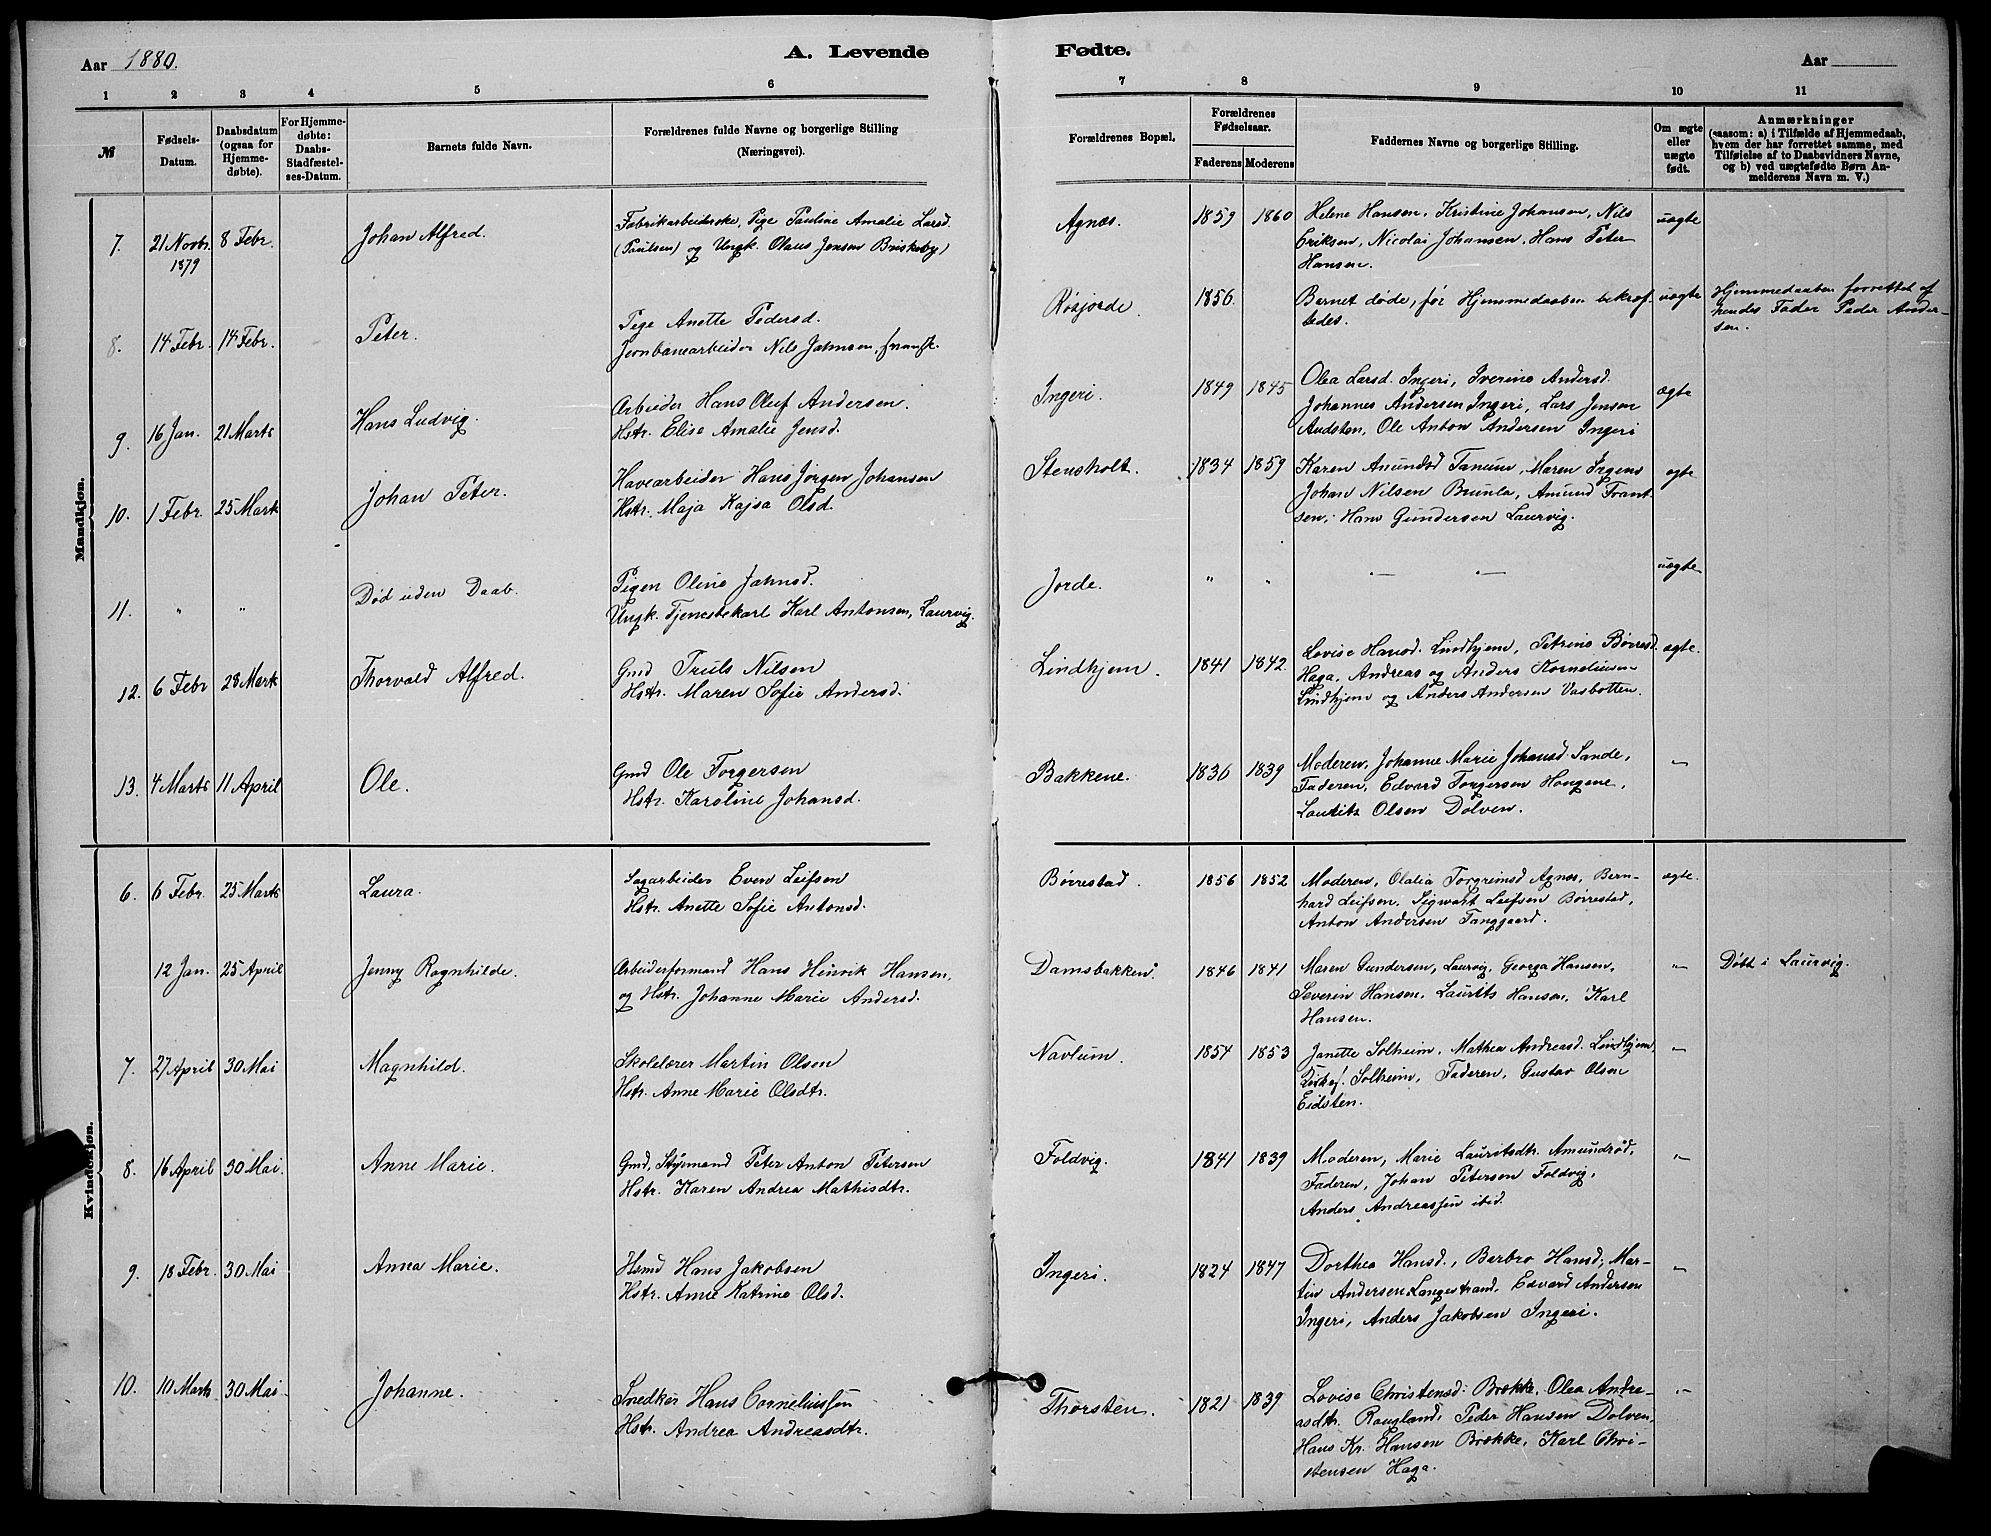 Aar 1880. A. Levende Fødte. Aar
1 2 3 4 5 6 7 8 9 10 11
№
Fødsels-
Datum.
Daabsdatum
(ogsaa for
Hjemme-
døbte).
For Hjemme-
døbte:
Daabs-
Stadfæstel-
ses-Datum.
Barnets fulde Navn.
Forældrenes fulde Navne og borgerlige Stilling
(Næringsvei).
Forældrenes Bopæl.
Forældrenes
Fødselsaar.
Faderens Moderens
Faddernes Navne og borgerlige Stilling.
Om ægte
eller
uægte
født.
Anmærkninger
(saasom: a) i Tilfælde af Hjemmedaab,
hvem der har forrettet samme, med
Tilføielse af to Daabsvidners Navne,
og b) ved uægtefødte Børn An-
melderens Navn m. V.)
Mandkjøn.
7. 21 Novbr. 8 Febr. Johan Alfred.
1879
Fabrikarbeiderske, Pige Pauline Amalie Larsd.
(Paulsen) og Ungk. Olaus Jensen Briskeby)
Agnæs. 1859 1860
Helene Hansen, Kristine Johansen, Nils
Eriksen, Nicolai Johansen, Hans Peter
Hansen.
uægte
8. 14 Febr. 14 Febr. Peter.
Pige Anette Pedersd.
Jernbanearbeider Nils Jahnsen, fraafsk.
Røsjorde. 1856.
Barnet døde, før Hjemmedaaben bekræf-
tedes.
uægte
Hjemmedaaben forrettet af
hendes Fader Peder Ander-
sen.
9. 16 Jan. 21 Marts Hans Ludvig.
Arbeider Hans Oluf Andersen.
Hstr. Elise Amalie Jensd.
Ingeri. 1849 1845
Olea Larsd. Ingeri, Iverine Andersd.
Johannes Andersen Ingeri, Lars Jensen
Audsten, Ole Anton Andersen Ingeri
ægte
10. 1 Febr. 25 Mark Johan Peter.
Havearbeider Hans Jørgen Johansen
Hstr. Maja Kajsa Olsd.
Stensholt. 1834 1859
Karen Amundsd Tanum, Maren Irgens
Johan Nilsen Brunla, Amund Frant-
sen, Hans Gundersen Laurvig.
ægte
11. " " Død uden Daab.
Pigen Oline Jahnsd.
Ungk. Tjenestekarl Karl Antonsen, Laurvig.
Jorde. " " — — uægte
12. 6 Febr 28 Mark Thorvald Alfred.
Gmd Truls Nilsen
Hstr. Maren Sofie Andersd.
Lindhjem. 1841 1842
Lovise Hansd. Lindhjem, Petrine Børresd.
Haga, Andreas og Anders Korneliusen-
Lindhjem og Anders Andersen Vasbotten.
ægte.
13. 4 Marts 11 April Ole.
Gmd Ole Torgersen
Hstr. Karoline Johansd.
Bakkene. 1836 1839
Moderen, Johanne Marie Johansd Sande,
Faderen, Edvard Torgersen Hougene,
Lauritz Olsen Dolven.
"
Kvindekjøn.
6. 6 Febr. 25 Marts Laura.
Sagarbeider Even Leifsen
Hstr. Anette Sofie Antonsd.
Børrestad. 1856 1852
Moderen, Olalia Torgrimsd Agnæs, Bern-
hard Leifsen, Sigwart Leifsen Børrestad,
Anton Andersen Tanggaard.
ægte.
12 Jan. 25 April Jenny Ragnhilde.
Arbeiderformand Hans Hinrik Hansen,
og Hstr. Johanne Marie Andersd.
Damsbakken. 1846 1841
Maren Gundersen, Laurvig, Georga Hansen,
Severin Hansen, Laurits Hansen, Karl
Hansen.
" Døbt i Laurvig.
7. 27 April 30 Mai Magnhild.
Skolelærer Martin Olsen
Hstr. Anne Marie Olsdtr.
Navlum. 1854 1853
Janette Solheim, Mathea Andreasd. Lindhjem,
Solheim, Faderen, Gustav Olsen
Eidsten.
"
8. 16 April 30 Mai. Anne Marie.
Gmd, Styrmand Peter Anton Petersen
Hstr. Karen Andrea Mathisdtr.
Foldvig. 1841 1839
Moderen, Marie Lauritsdtr. Amundrød,
Faderen, Johan Petersen Foldvig,
Anders Andreassen ibid.
"
9. 18 Febr. 30 Mai Anna Marie.
Hsmd Hans Jakobsen
Hstr. Anne Katrine Olsd.
Ingeri. 1824 1847
Dorthea Hansd., Berbro Hansd, Mar-
tin Andersen Langestrand, Edvard Andersen
Ingeri, Anders Jakobsen Ingeri.
"
10. 10 Marts 30 Mai Johanne.
Snedker Hans Corneliussen
Hstr. Andrea Andreasdtr.
Thorsten. 1821 1839
Lovise Christensd: Brække, Olea Andre-
asdtr. Raugland, Peder Hansen Dolven,
Hans Kr. Hansen Brække, Karl Chri-
stensen Haga.
"